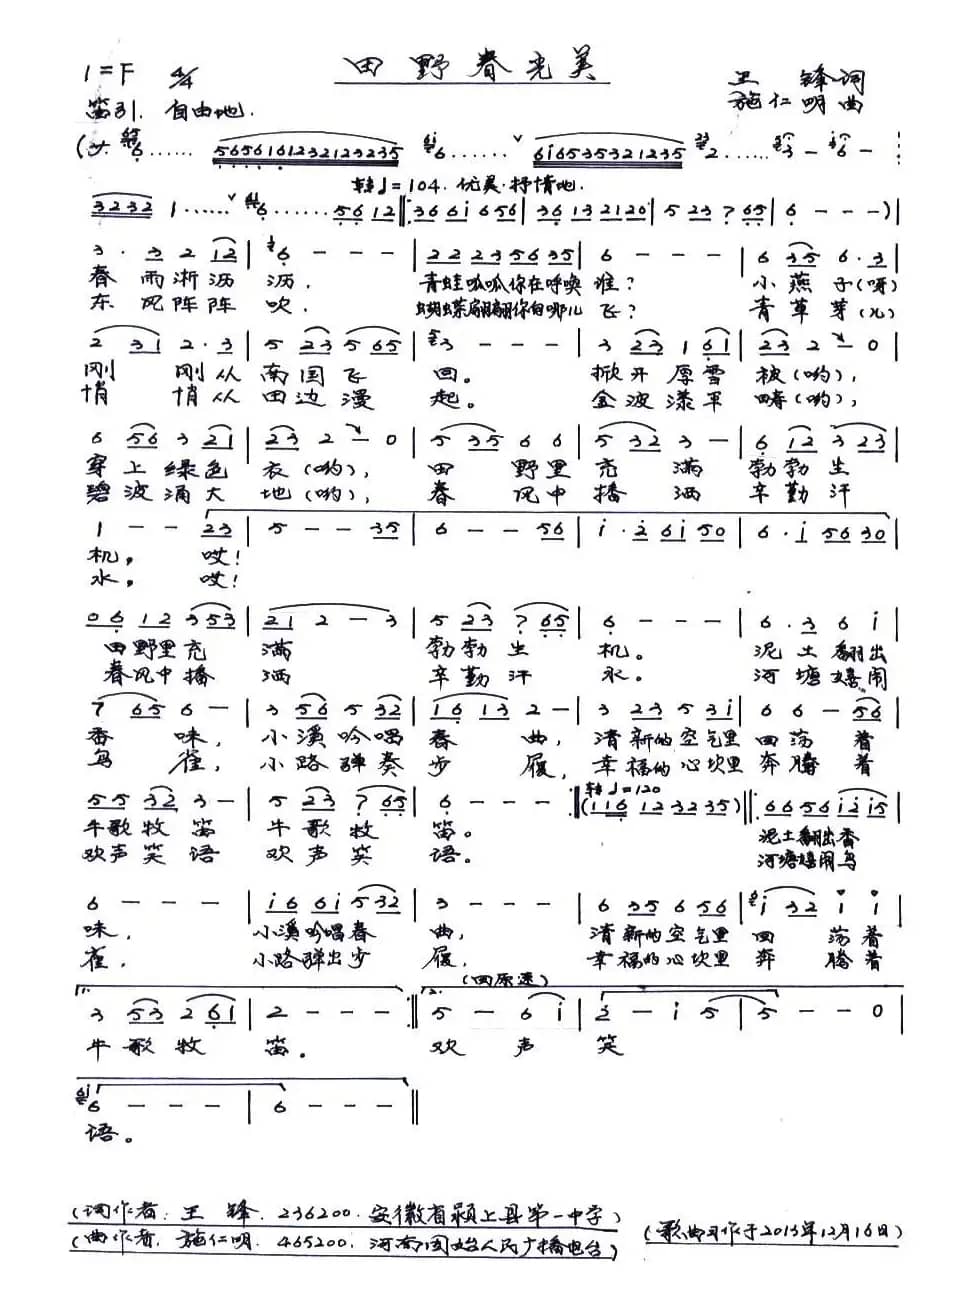 田野春光美
1=F 4/4
王锋词
笛引. 自由地.
施仁明曲
(サ 6̣…… 5656161232123235 6…… 6i65353532123 5 2…… 3 — 6 —
转♩=104. 优美.抒情地.
3232 1…… 6…… 56 12 ‖: 36 6i 6 56 | 36 13 21 20 | 5 23 7 65 | 6 - - - ) |
3 · 3 2 12 | 6 - - - | 22 23 56 35 | 6 - - - | 6 35 6·3 |
春雨淅沥 沥, 青蛙呱呱你在呼唤 谁? 小燕子(呀)
东风阵阵 吹, 蝴蝶翩翩你自哪儿 飞? 青草芽(儿)
2 31 2·3 | 5 23 5 65 | 3 - - - | 3 23 1 61 | 23 2 - 0 |
刚 刚从 南国飞 回。 掀开厚雪 被(哟),
悄 悄从 田边漫 起。 金波漾平 畴(哟),
6 56 3 21 | 23 2 - 0 | 5 35 6 6 | 5 32 3 - | 6 12 3 23 |
穿上绿色 衣(哟), 田野里 充满 勃勃生
碧波涌大 地(哟), 春风中 播洒 辛勤汗
1 - - 23 | 5 - - 35 | 6 - - 56 | i·2 6i 50 | 6·i 56 30 |
机, 哎!
水, 哎!
06 12 3 53 | 21 2 - 3 | 5 23 7 65 | 6 - - - | 6·3 6 i |
田野里充 满 勃勃生 机。 泥土翻出
春风中播 洒 辛勤汗 水。 河塘嬉闹
7 65 6 - | 3 56 5 32 | 16 13 2 - | 3 23 5 3i | 6 6 - 56 |
香味, 小溪吟唱 春曲, 清新的空气里 回荡着
鸟雀, 小路弹奏 步履, 幸福的心坎里 奔腾着
转♩=120
55 32 3 - | 5 23 7 65 | 6 - - - :‖ (116 12 32 35) ‖: 66 56 i2 i5 |
牛歌牧笛 牛歌牧 笛。 泥土翻出香
欢声笑语 欢声笑 语。 河塘嬉闹鸟
6 - - - | i6 6i 5 32 | 3 - - - | 6 35 6 56 | i 32 i i |
味, 小溪吟唱春 曲, 清新的空气里 回荡着
雀, 小路弹出步 履, 幸福的心坎里 奔腾着
(回原速)
1. 2.
3 53 2 61 | 2 - - - :‖ 5 - 6 i | 2 - i 5 | 5 - - 0 |
牛歌牧 笛。 欢声 笑
6 - - - | 6 - - - ‖
语。
(词作者: 王锋. 236200. 安徽省颍上县第一中学)
(曲作者: 施仁明. 465200. 河南固始人民广播电台)
(歌曲习作于2013年12月16日)